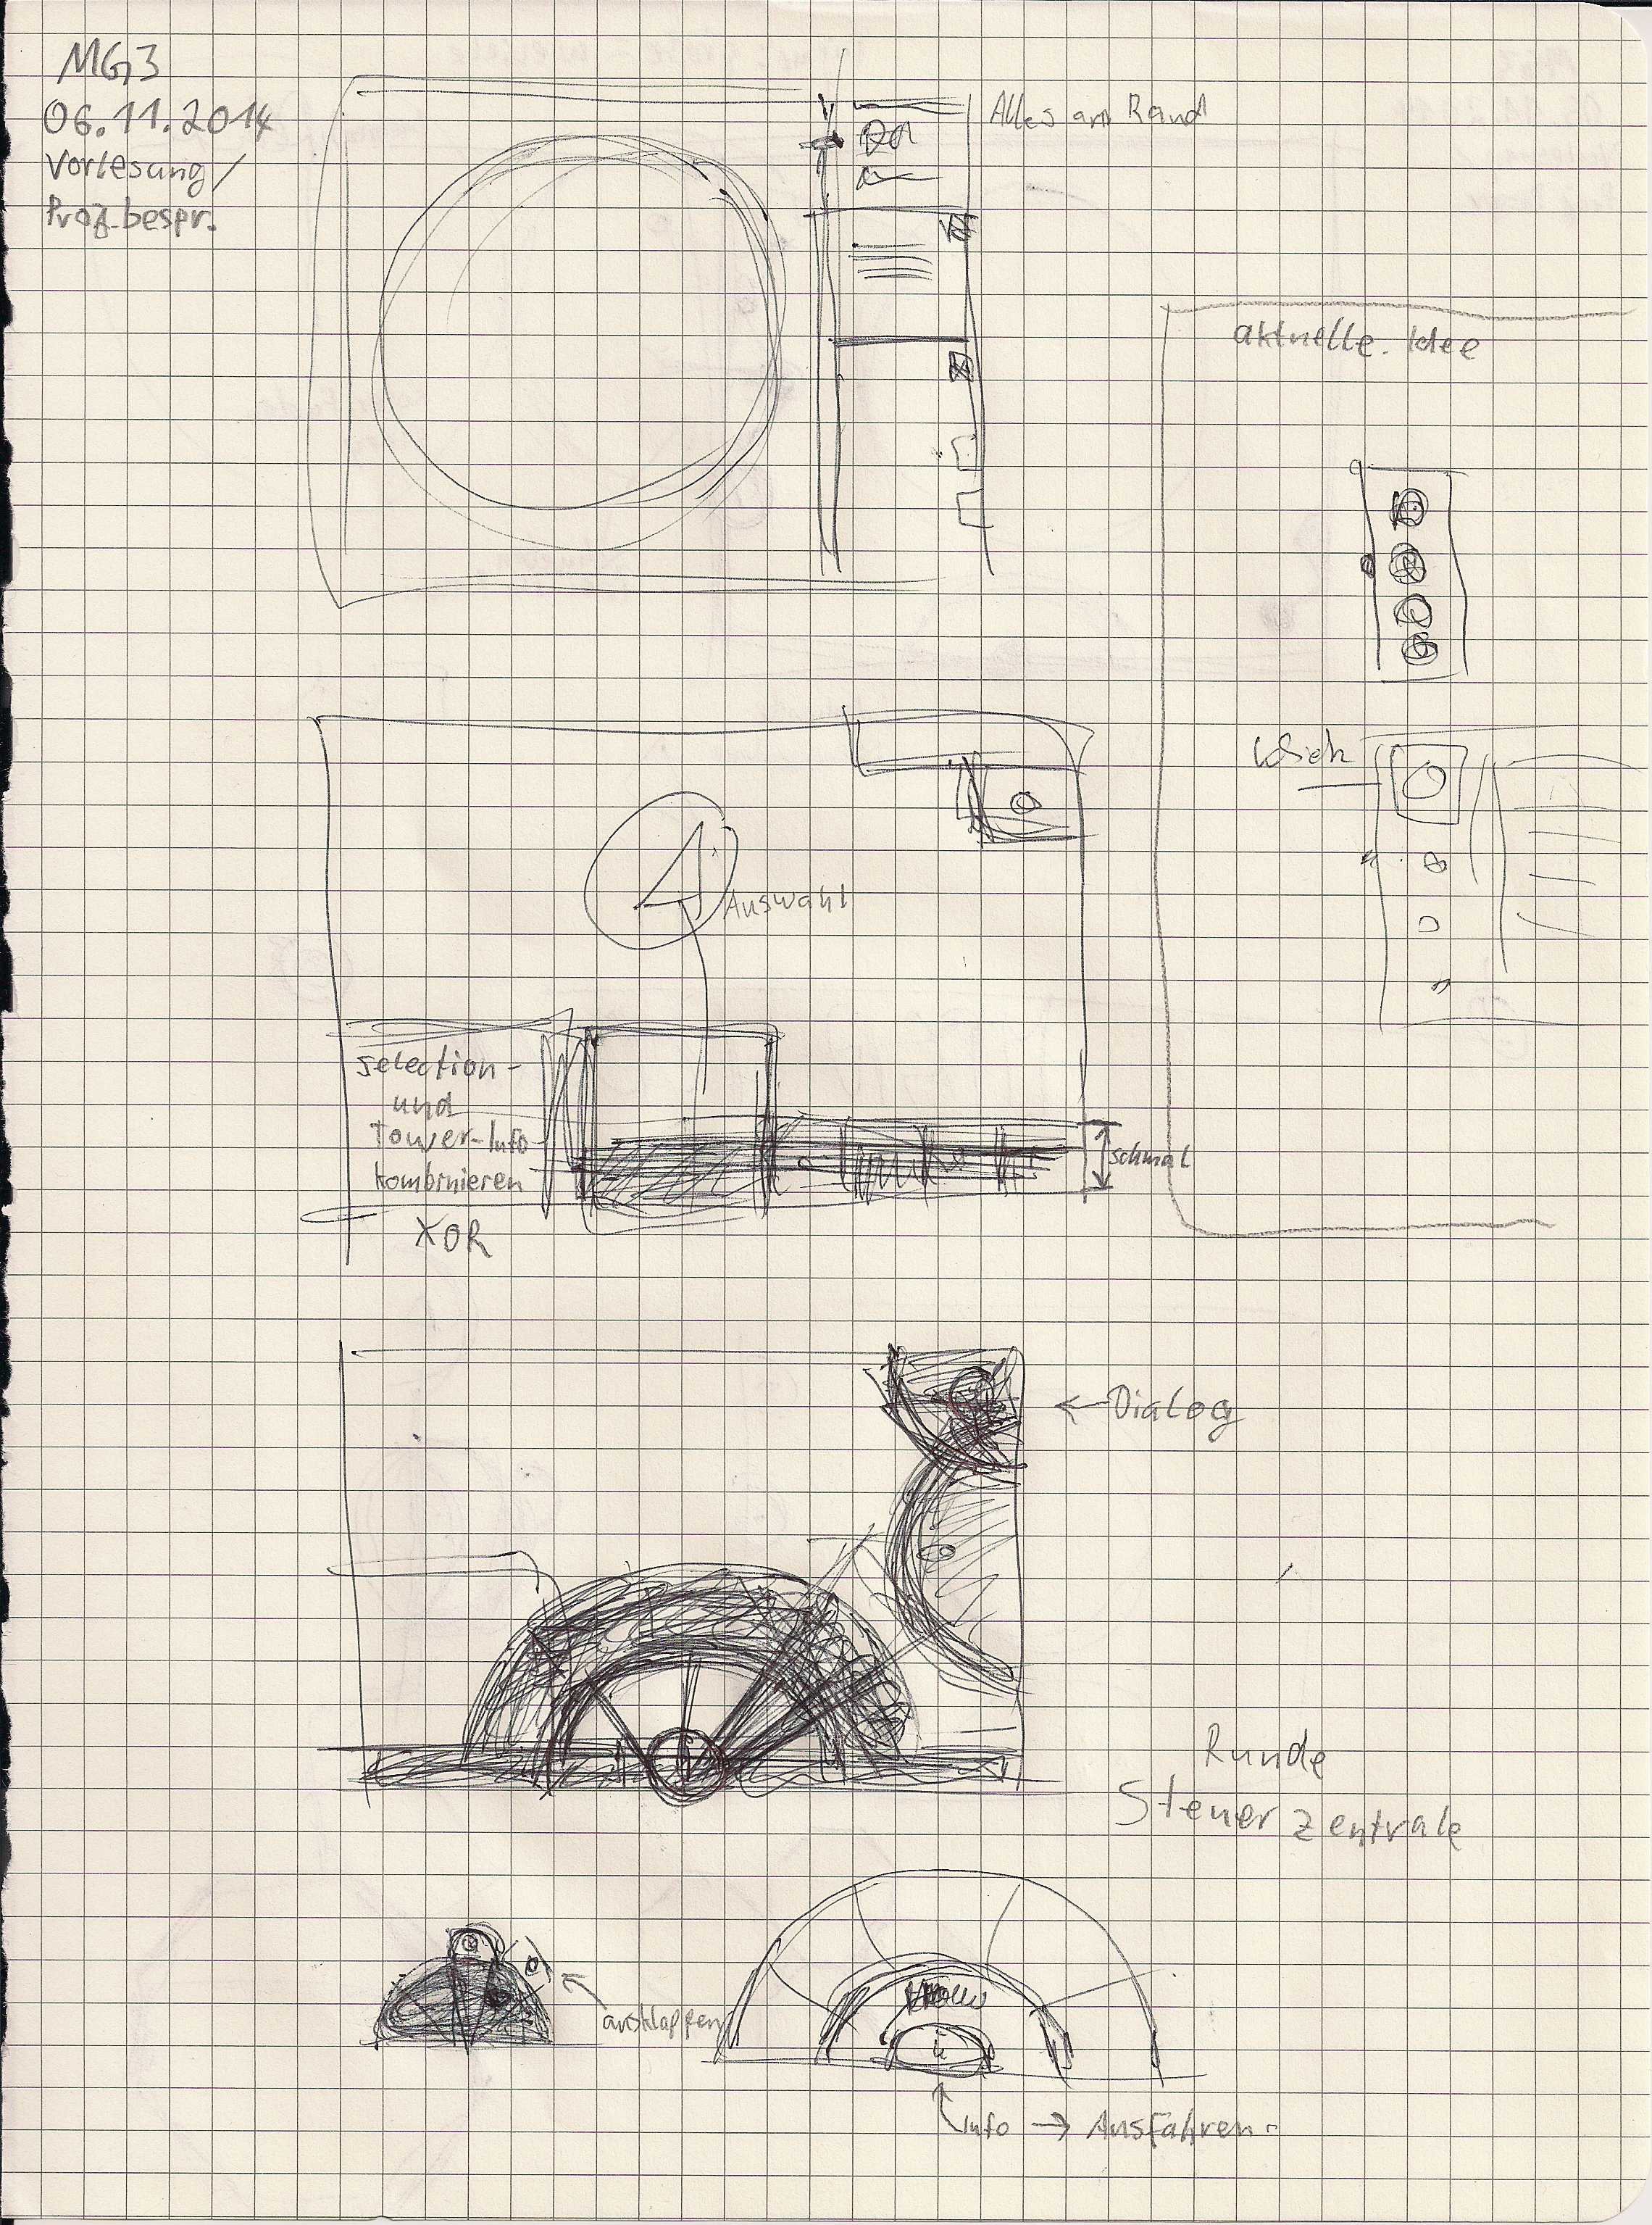 MG3
06.11.2014
Vorlesung/
Proj.bespr.
Alles am Rand
aktuelle Idee
Auswahl
selection-
und
Tower-Info
kombinieren
XOR
schmal
← Dialog
Runde
Steuerzentrale
ausklappen
i
Info → Ausfahren